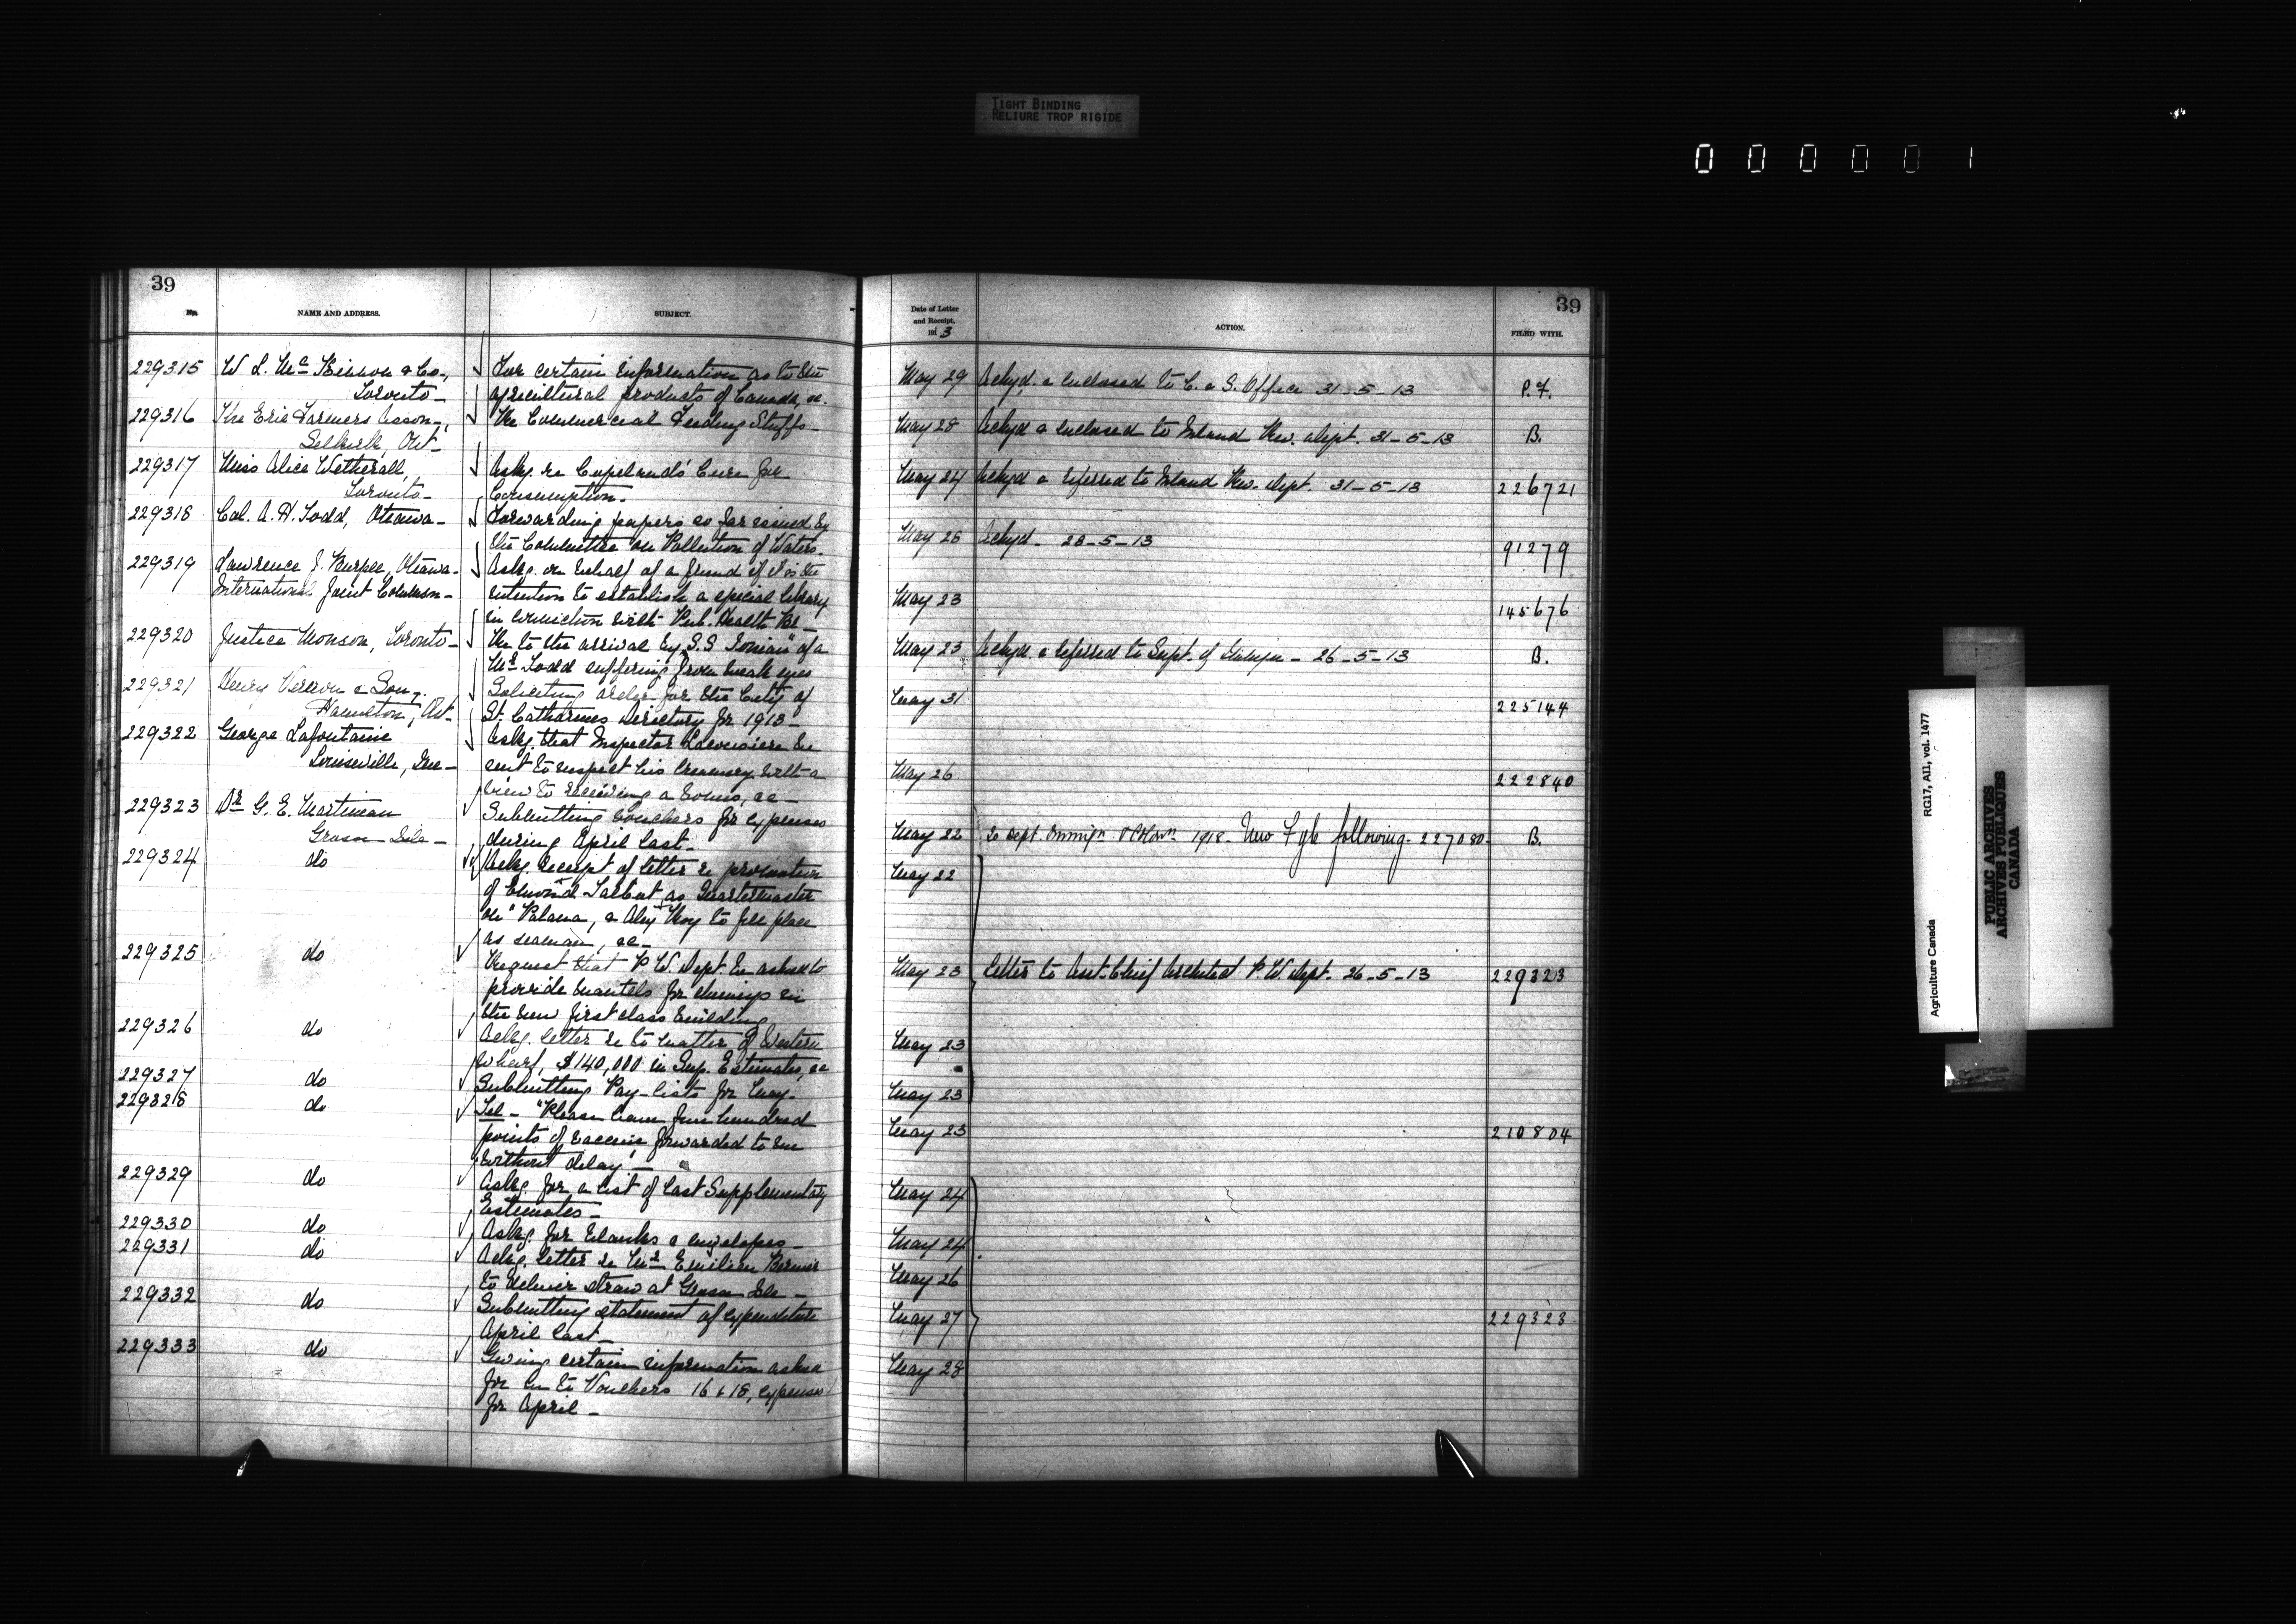 TIGHT BINDING
RELIURE TROP RIGIDE
000001
39
No.
NAME AND ADDRESS.
SUBJECT.
229315
W L. Mc Kinnon & Co.,
Toronto
For certain information as to the
agricultural products of Canada, &c.
229316
The Erie Farmers Asson,
Selkirk, Ont
Re Commercial Feeding Stuffs
229317
Miss Alice Wetherall,
Toronto
Askg. re Copeland's Cure for
Consumption.
229318
Col. A. H. Todd, Ottawa
Forwarding papers so far issued by
the Committee on Pollution of Waters.
229319
Lawrence J. Burpee, Ottawa
International Joint Commsn
Askg. on behalf of a friend if it is the
intention to establish a special library
in connection with Pub. Health Br
229320
Justice Monson, Toronto
Re to the arrival by S.S "Ionian" of a
Mr Todd suffering from weak eyes
229321
Henry Vernon & Son,
Hamilton, Ont
Soliciting order for the City of
St. Catharines Directory for 1913
229322
George Lafontaine
Louiseville, Que
Askg. that Inspector be
sent to inspect his Creamery with a
view to receiving a bonus, &c
229323
Dr G. E. Martineau
Grosse Isle
Submitting vouchers for expenses
during April last
229324
do
Ackg. receipt of letter re promotion
of Edmond Talbot as Quartermaster
on "Polana, & Alex Roy to fill place
as seaman, &c
229325
do
Request that P W. Dept. be asked to
provide mantels for chimneys in
the new first class building
229326
do
Ackg. letter re to matter of Western
wharf, $140,000 in Sup. Estimates, &c
229327
do
Submitting Pay lists for May.
229328
do
Tel - "Please have five hundred
points of vaccine forwarded to me
without delay"
229329
do
Askg. for a list of last Supplementary
Estimates
229330
do
Askg. for blanks & envelopes
229331
do
Ackg. letter re Mr Emilien Bernier
to deliver straw at Grosse Isle
229332
do
Submitting statement of expenditure
April last
229333
do
Giving certain information asked
for re to Vouchers 16 & 18, expenses
for April
39
Date of Letter
and Receipt,
1913
ACTION.
FILED WITH.
May 29 Ackgd. & enclosed to C. & S. Office 31-5-13 P.F.
May 28 Ackgd & enclosed to Inland Rev. Dept. 31-5-13 B.
May 24 Ackgd & referred to Inland Rev. Dept. 31-5-13 226721
May 26 Ackgd. 28-5-13 91279
May 23 145676
May 23 Ackgd. & referred to Supt. of - 26-5-13 B.
May 31 225144
May 26 222840
May 22 To Dept. Immign & Colonn 1918. following 227080 B.
May 22
May 23 Letter to Asst. Chief Architect P. W. Dept. 26-5-13 229323
May 23
May 23
May 23 210804
May 24
May 24
May 26
May 27 229323
May 28
Agriculture Canada RG17, AII, vol. 1477
PUBLIC ARCHIVES
ARCHIVES PUBLIQUES
CANADA